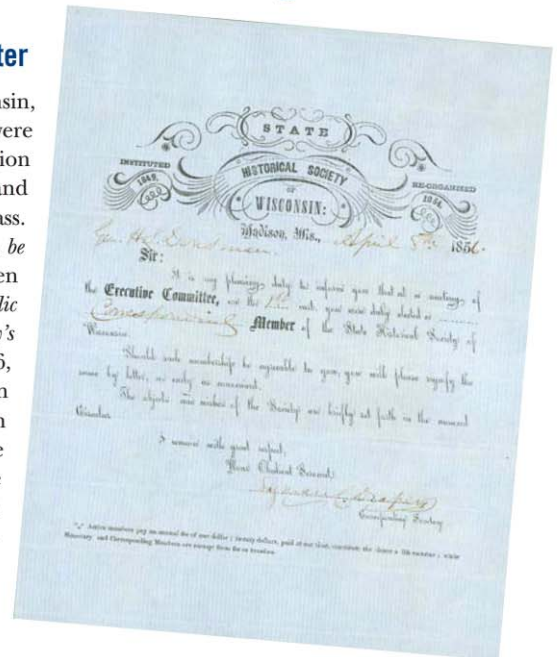 ter
nsin,
were
tion
and
ass.
be
en
lic
y's
6,
n
n
e
STATE
INSTITUTED
1849.
HISTORICAL SOCIETY
OF
WISCONSIN:
RE-ORGANIZED
1854.
Madison, Wis., April 8th 1856.
Gen.
Sir:
It is my pleasing duty to inform you that at a meeting of
the Executive Committee, on the 1st inst. you were duly elected a
Corresponding Member of the State Historical Society of
Wisconsin.
Should such membership be agreeable to you, you will please signify the
same by letter, as early as convenient.
The objects and wishes of the Society are briefly set forth in the annexed
Circular.
I remain with great respect,
Your Obedient Servant,
Lyman C. Draper
Corresponding Secretary
Active members pay an annual fee of one dollar; twenty dollars, paid at one time, constitute the donor a life member; while
Honorary and Corresponding Members are exempt from fee or taxation.